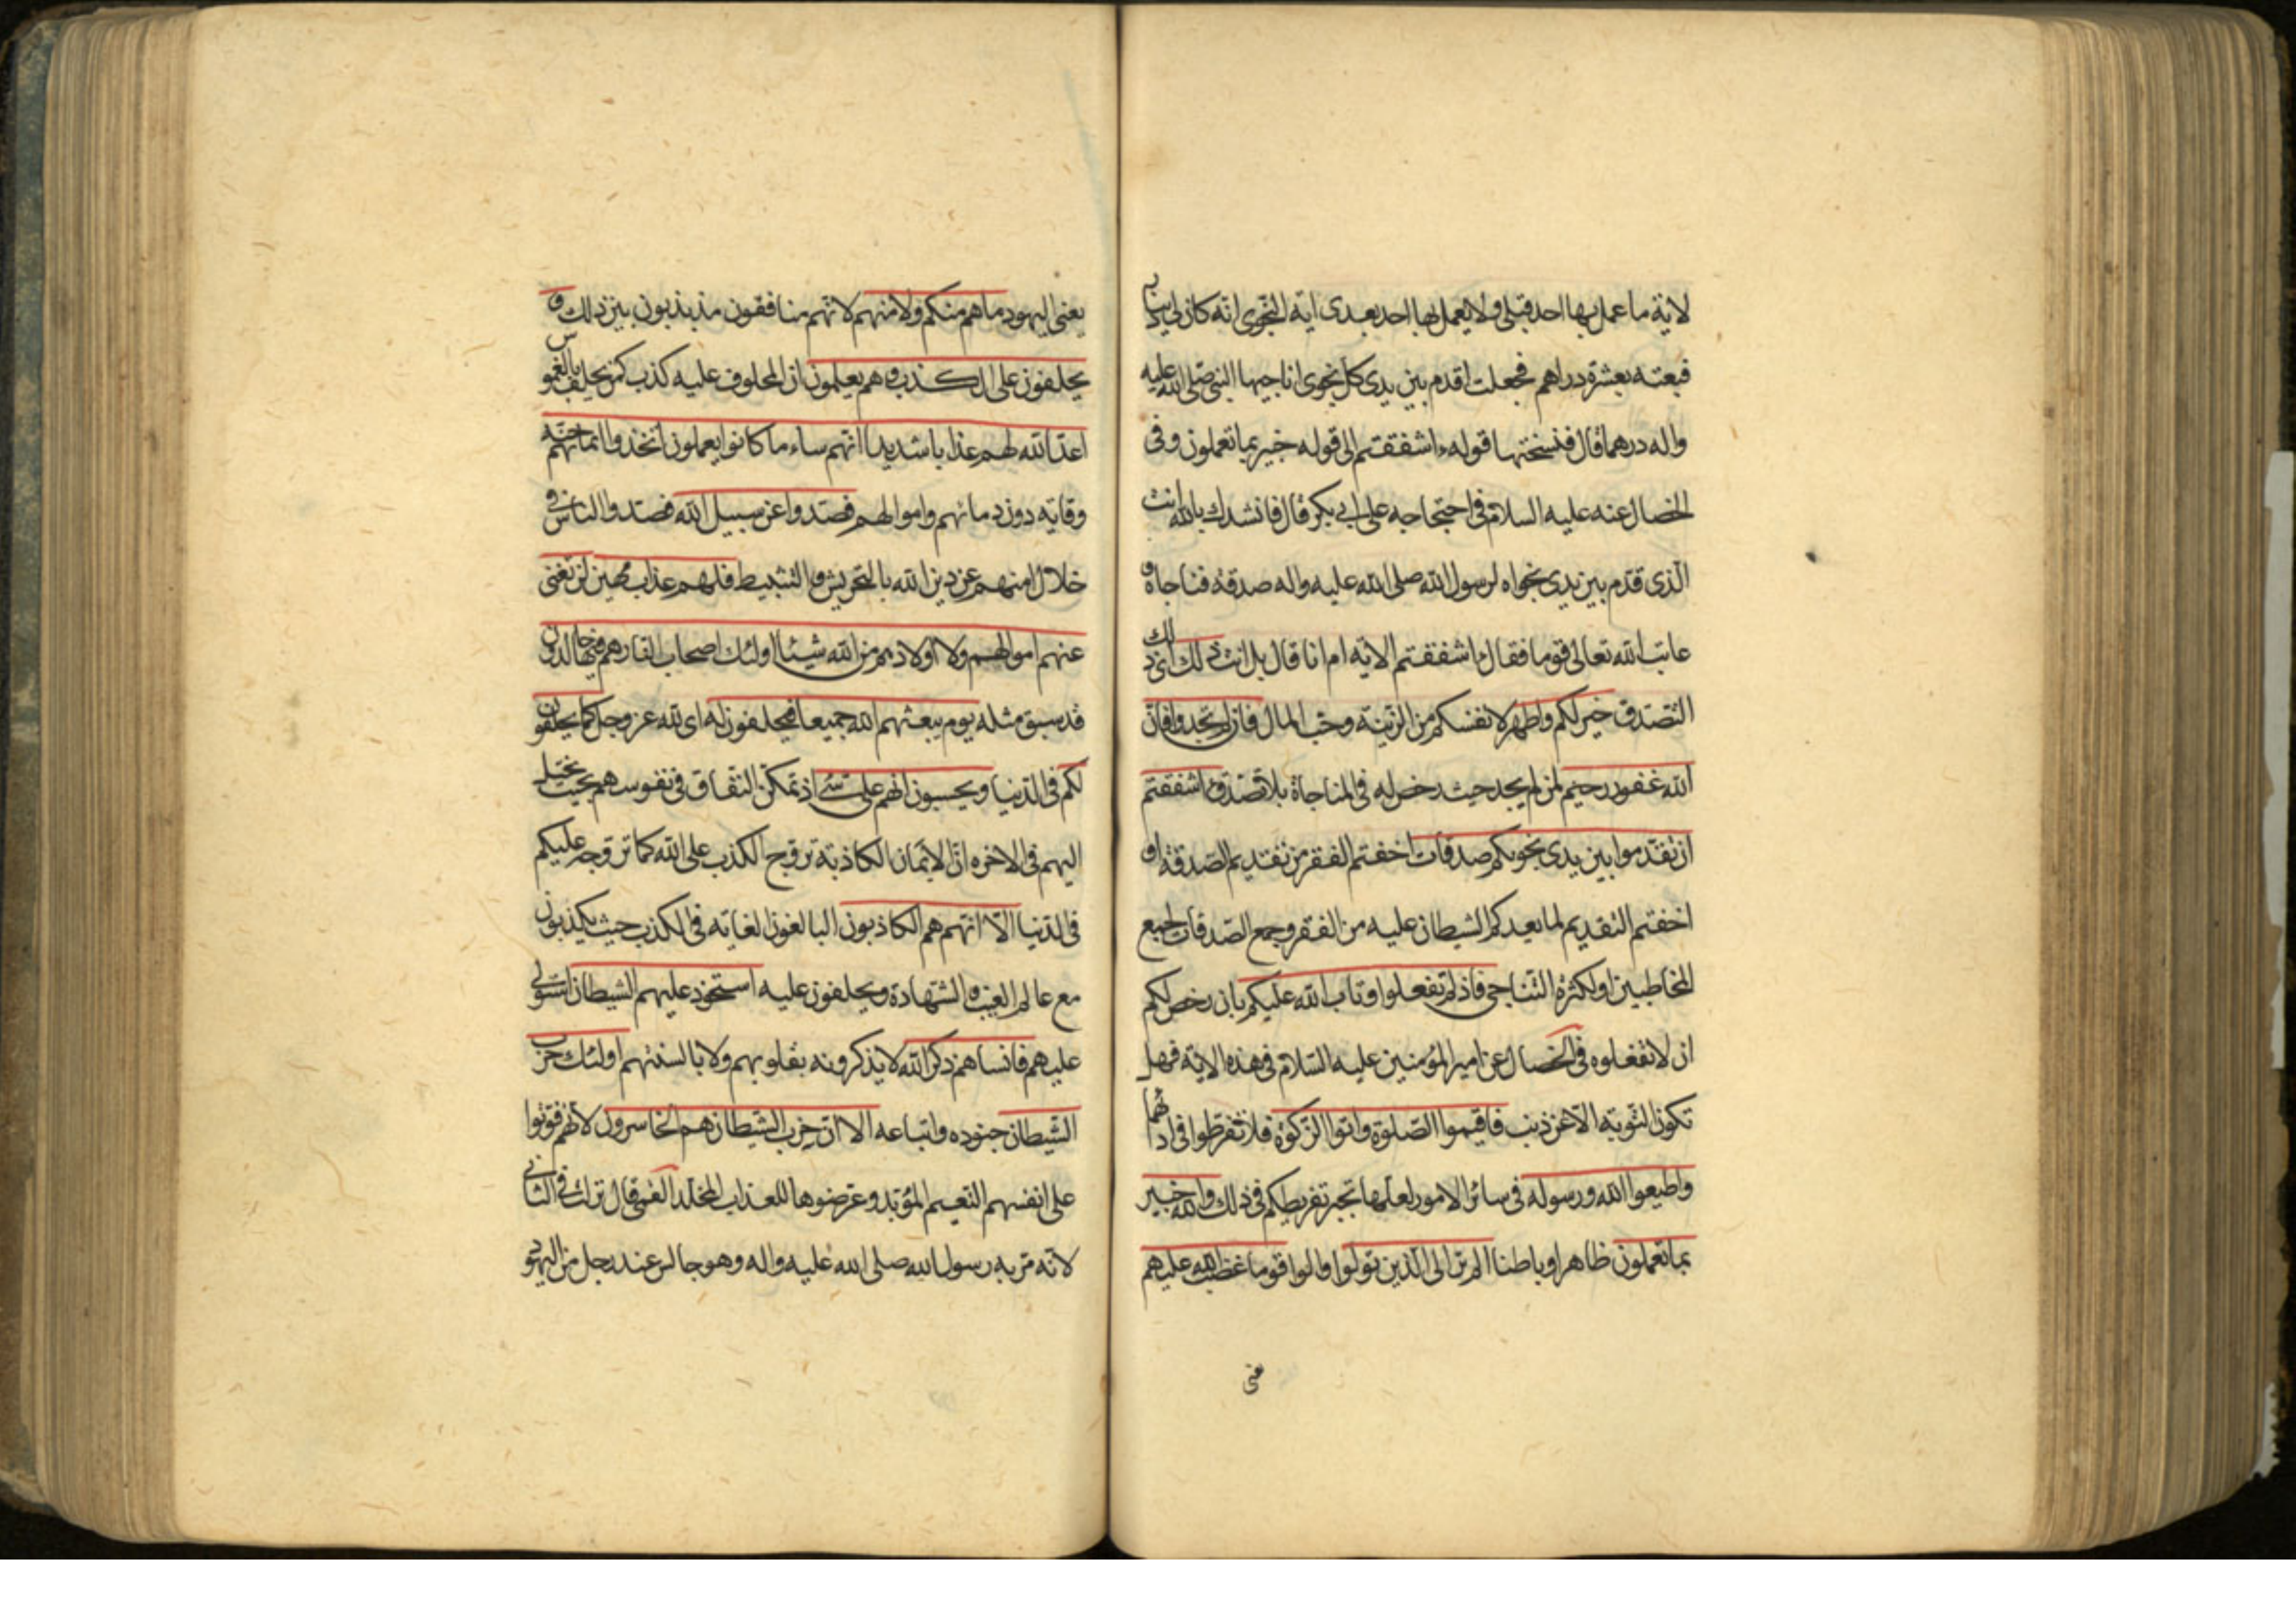 لاية ما عمل بها احد قبلى ولا يعمل بها احد بعدى اية النجوى انه كان لى دينار
فبعته بعشرة دراهم فجعلت اقدم بين يدى كل نجوى اناجيها النبى صلى الله عليه
واله درهما قال فنسختها قوله ءاشفقتم الى قوله خبير بما تعملون وفى
الخصال عنه عليه السلام فى احتجاجه على ابى بكر قال فانشدك بالله انت
الذى قدم بين يدى نجواه لرسول الله صلى الله عليه واله صدقة فناجاه و
عاتب الله تعالى قوما فقال ءاشفقتم الاية ام انا قال بل انت ذلك اى ذلك
التصدق خير لكم واطهر لانفسكم من الزينة وحب المال فان لم تجدوا فان
الله غفور رحيم لمن لم يجد حيث رخص له فى المناجاة بلا تصدق ءاشفقتم
ان تقدموا بين يدى نجويكم صدقات اخفتم الفقر من تقديم الصدقة او
اخفتم التقديم لما يعدكم الشيطان عليه من الفقر وجمع الصدقات لجمع
المخاطبين او لكثرة التناجى فاذ لم تفعلوا وتاب الله عليكم بان رخص لكم
ان لا تفعلوه فى الخصال عن امير المؤمنين عليه السلام فى هذه الاية فهل
تكون التوبة الا عن ذنب فاقيموا الصلوة واتوا الزكوة فلا تفرطوا فى ادائهما
واطيعوا الله ورسوله فى سائر الامور لعلها تجبر تفريطكم فى ذلك والله خبير
بما تعملون ظاهرا وباطنا الم تر الى الذين تولوا والوا قوما غضب الله عليهم
يعنى اليهود ما هم منكم ولا منهم لانهم منافقون مذبذبون بين ذلك و
يحلفون على الكذب وهم يعلمون ان المحلوف عليه كذب كمن يحلف بالغموس
اعد الله لهم عذابا شديدا انهم ساء ما كانوا يعملون اتخذوا ايمانهم جنة
وقاية دون دمائهم واموالهم فصدوا عن سبيل الله فصدوا الناس فى
خلال امنهم عن دين الله بالتحريش والتثبيط فلهم عذاب مهين لن تغنى
عنهم اموالهم ولا اولادهم من الله شيئا اولئك اصحاب النار هم فيها خالدون
قد سبق مثله يوم يبعثهم الله جميعا فيحلفون له اى لله عز وجل كما يحلفون
لكم فى الدنيا ويحسبون انهم على شئ اذ تمكن النفاق فى نفوسهم بحيث يخيل
اليهم فى الاخره ان الايمان الكاذبة تروج الكذب على الله كما تروجه عليكم
فى الدنيا الا انهم هم الكاذبون البالغون الغاية فى الكذب حيث يكذبون
مع عالم الغيب والشهادة ويحلفون عليه استحوذ عليهم الشيطان استولى
عليهم فانساهم ذكر الله لا يذكرونه بقلوبهم ولا بالسنتهم اولئك حزب
الشيطان جنوده واتباعه الا ان حزب الشيطان هم الخاسرون لانهم فوتوا
على انفسهم النعيم المؤبد وعرضوها للعذاب المخلد القمى قال نزلت فى الثانى
لانه مر به رسول الله صلى الله عليه واله وهو جالس عند رجل من اليهود